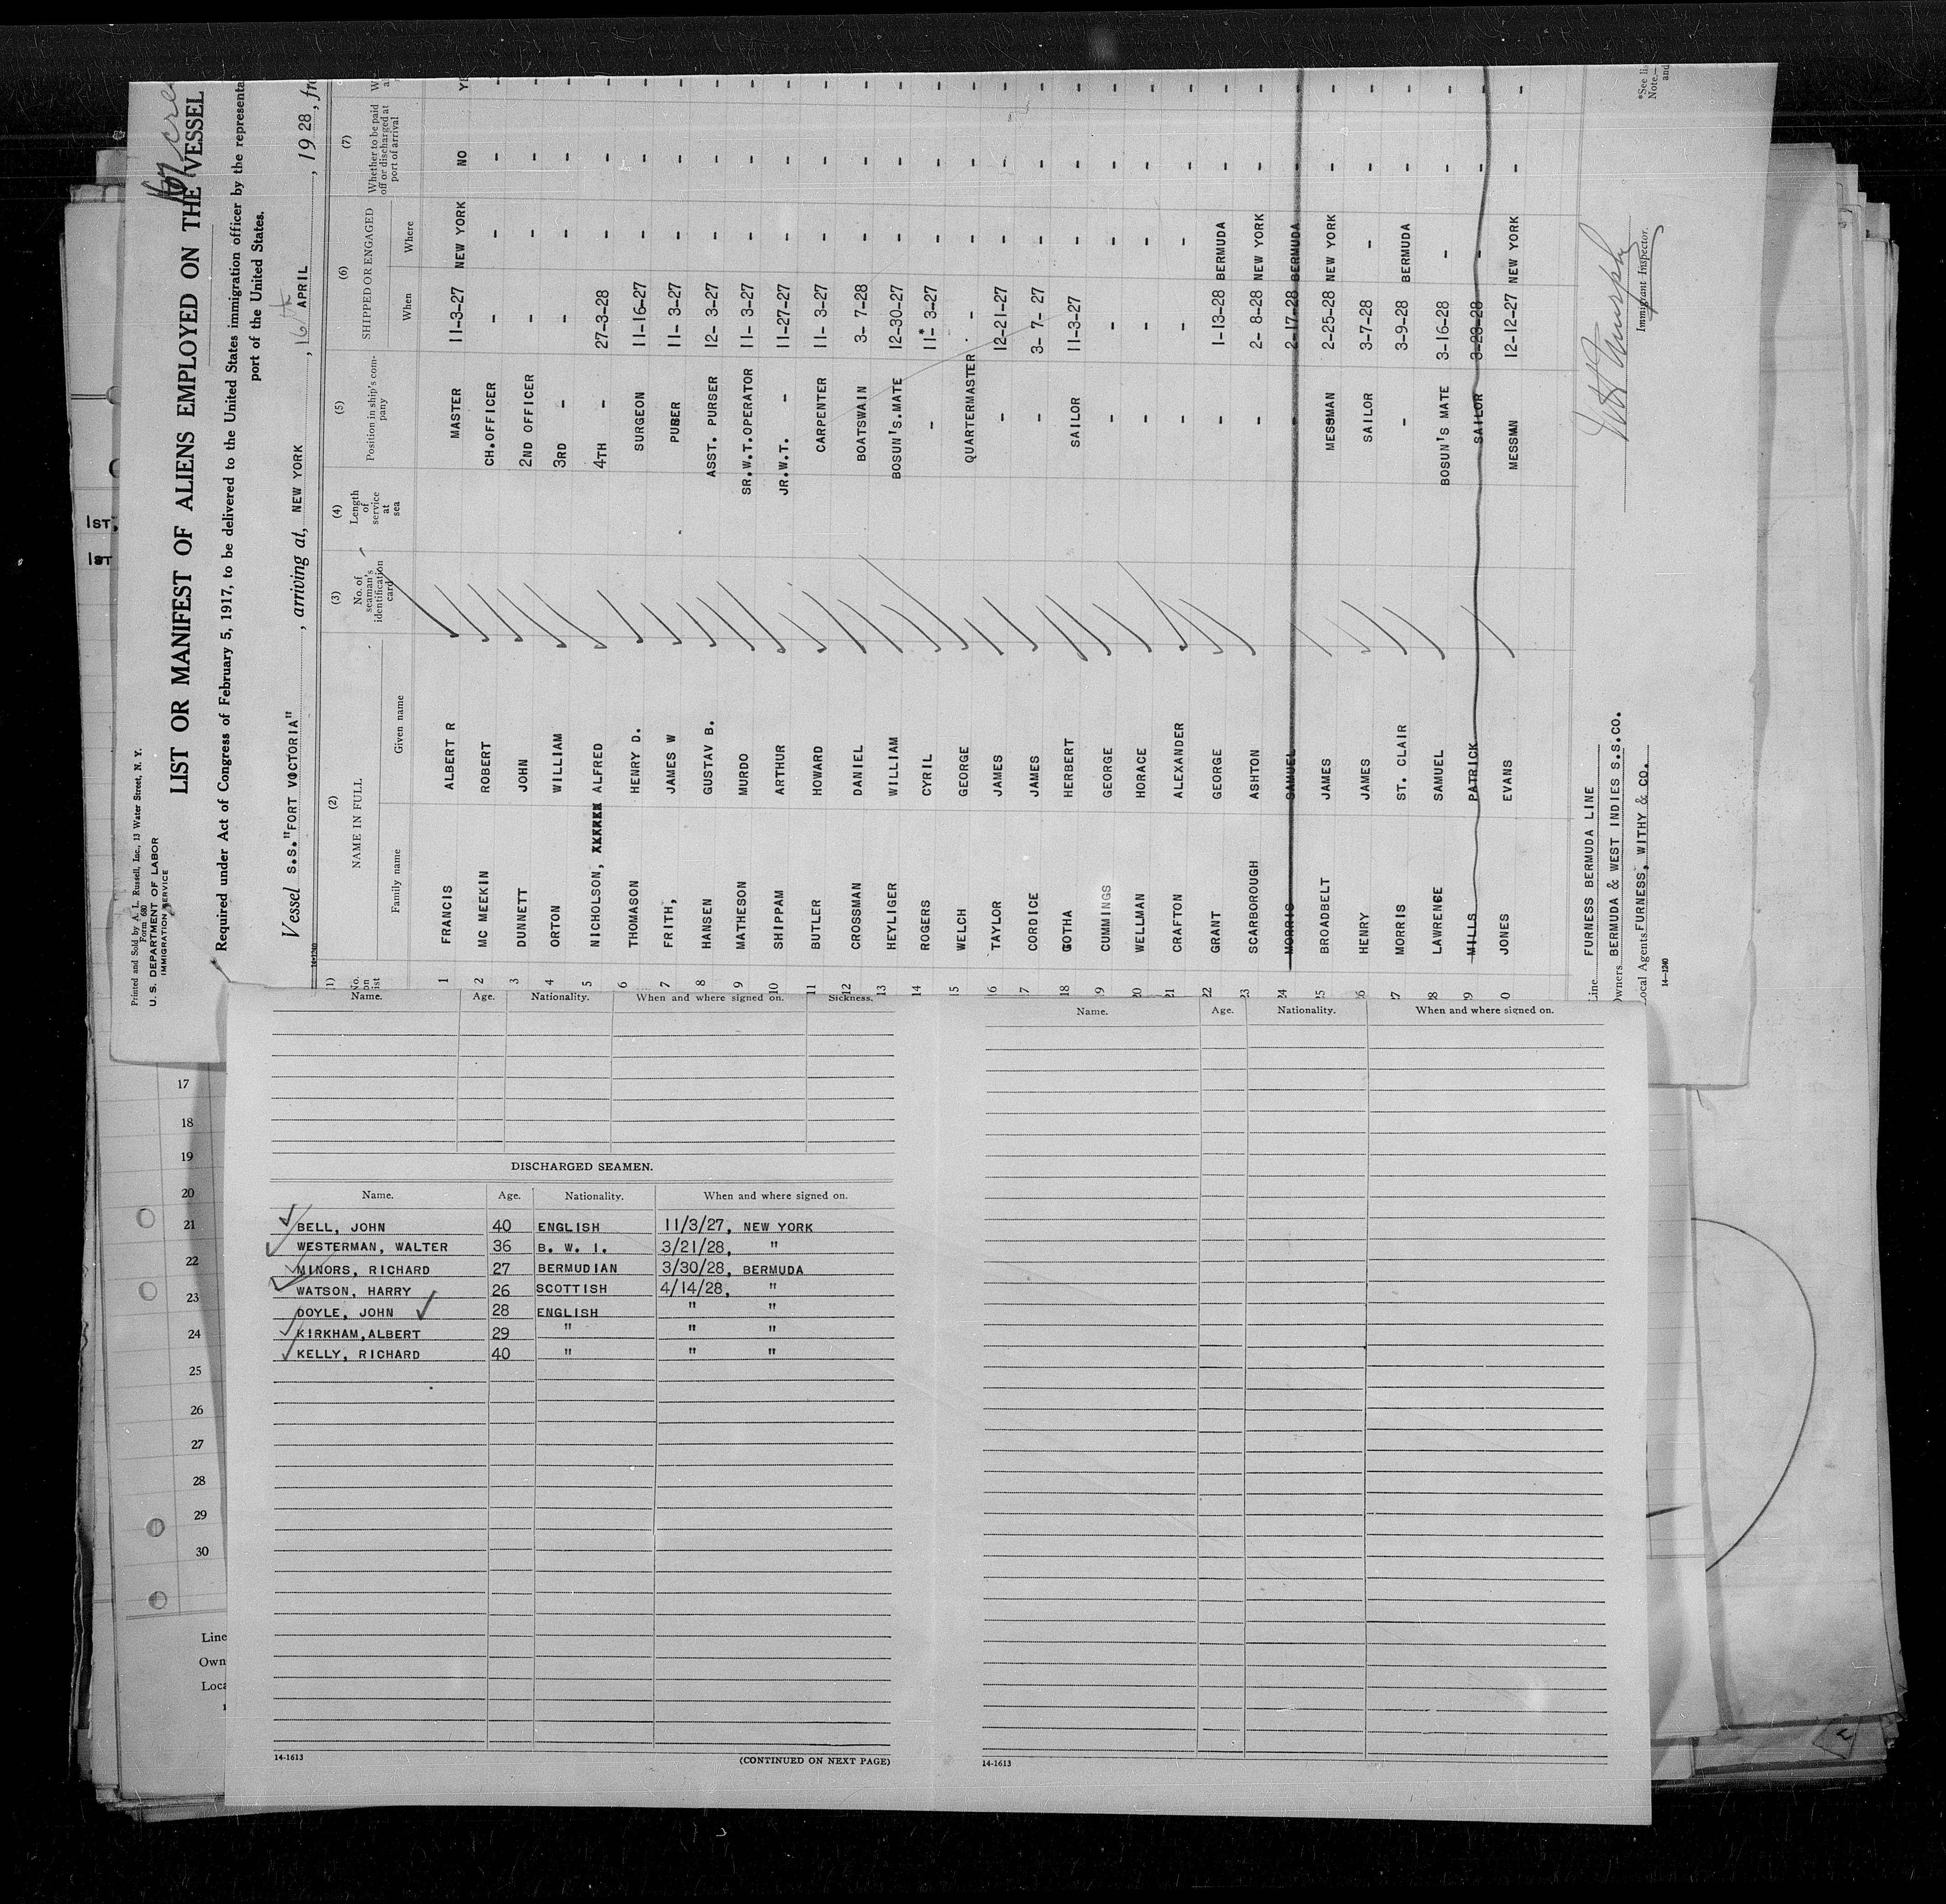 Printed and Sold by A. L. Russell, Inc., 13 Water Street, N. Y.
Form 680
U. S. DEPARTMENT OF LABOR
IMMIGRATION SERVICE
LIST OR MANIFEST OF ALIENS EMPLOYED ON THE VESSEL
Required under Act of Congress of February 5, 1917, to be delivered to the United States immigration officer by the representa
port of the United States.
Vessel S.S."FORT VICTORIA", arriving at, NEW YORK, 16th APRIL, 1928, fro
(2) (3) (4) (5) (6) (7)
NAME IN FULL No. of seaman's identification card Length of service at sea Position in ship's company SHIPPED OR ENGAGED Whether to be paid off or discharged at port of arrival
Family name Given name When Where
1 FRANCIS ALBERT R MASTER 11-3-27 NEW YORK NO YE
2 MC MEEKIN ROBERT CH.OFFICER - - - -
3 DUNNETT JOHN 2ND OFFICER - - - -
4 ORTON WILLIAM 3RD - - - - -
5 NICHOLSON, XXXXXX ALFRED 4TH - 27-3-28 - - -
6 THOMASON HENRY D. SURGEON 11-16-27 - - -
7 FRITH, JAMES W PURSER 11- 3-27 - - -
8 HANSEN GUSTAV B. ASST. PURSER 12- 3-27 - - -
9 MATHESON MURDO SR.W.T.OPERATOR 11- 3-27 - - -
10 SHIPPAM ARTHUR JR.W.T. - 11-27-27 - - -
11 BUTLER HOWARD CARPENTER 11- 3-27 - - -
12 CROSSMAN DANIEL BOATSWAIN 3- 7-28 - - -
13 HEYLIGER WILLIAM BOSUN'S.MATE 12-30-27 - - -
14 ROGERS CYRIL - 11- 3-27 - - -
15 WELCH GEORGE QUARTERMASTER - - - -
16 TAYLOR JAMES - 12-21-27 - - -
17 CORDICE JAMES - 3- 7- 27 - - -
18 GOTHA HERBERT SAILOR 11-3-27 - - -
19 CUMMINGS GEORGE - - - - -
20 WELLMAN HORACE - - - - -
21 CRAFTON ALEXANDER - - - - -
22 GRANT GEORGE - 1-13-28 BERMUDA - -
23 SCARBOROUGH ASHTON - 2- 8-28 NEW YORK - -
24 MORRIS SAMUEL - 2-17-28 BERMUDA - -
25 BROADBELT JAMES MESSMAN 2-25-28 NEW YORK - -
26 HENRY JAMES SAILOR 3-7-28 - - -
27 MORRIS ST. CLAIR - 3-9-28 BERMUDA - -
28 LAWRENCE SAMUEL BOSUN'S MATE 3-16-28 - - -
29 MILLS PATRICK SAILOR 3-23-28 - - -
0 JONES EVANS MESSMN 12-12-27 NEW YORK - -
Line FURNESS BERMUDA LINE
Owners BERMUDA & WEST INDIES S.S.CO.
Local Agents FURNESS, WITHY & CO.
14-1240
Immigrant Inspector.
*See lis
Note.—
and
1ST,
1ST
Name. Age. Nationality. When and where signed on. Sickness.
DISCHARGED SEAMEN.
Name. Age. Nationality. When and where signed on.
BELL, JOHN 40 ENGLISH 11/3/27, NEW YORK
WESTERMAN, WALTER 36 B. W. I. 3/21/28, "
MINORS, RICHARD 27 BERMUDIAN 3/30/28, BERMUDA
WATSON, HARRY 26 SCOTTISH 4/14/28, "
DOYLE, JOHN 28 ENGLISH " "
KIRKHAM,ALBERT 29 " " "
KELLY, RICHARD 40 " " "
14-1613 (CONTINUED ON NEXT PAGE)
Name. Age. Nationality. When and where signed on.
14-1613
17
18
19
20
21
22
23
24
25
26
27
28
29
30
Line
Own
Loca